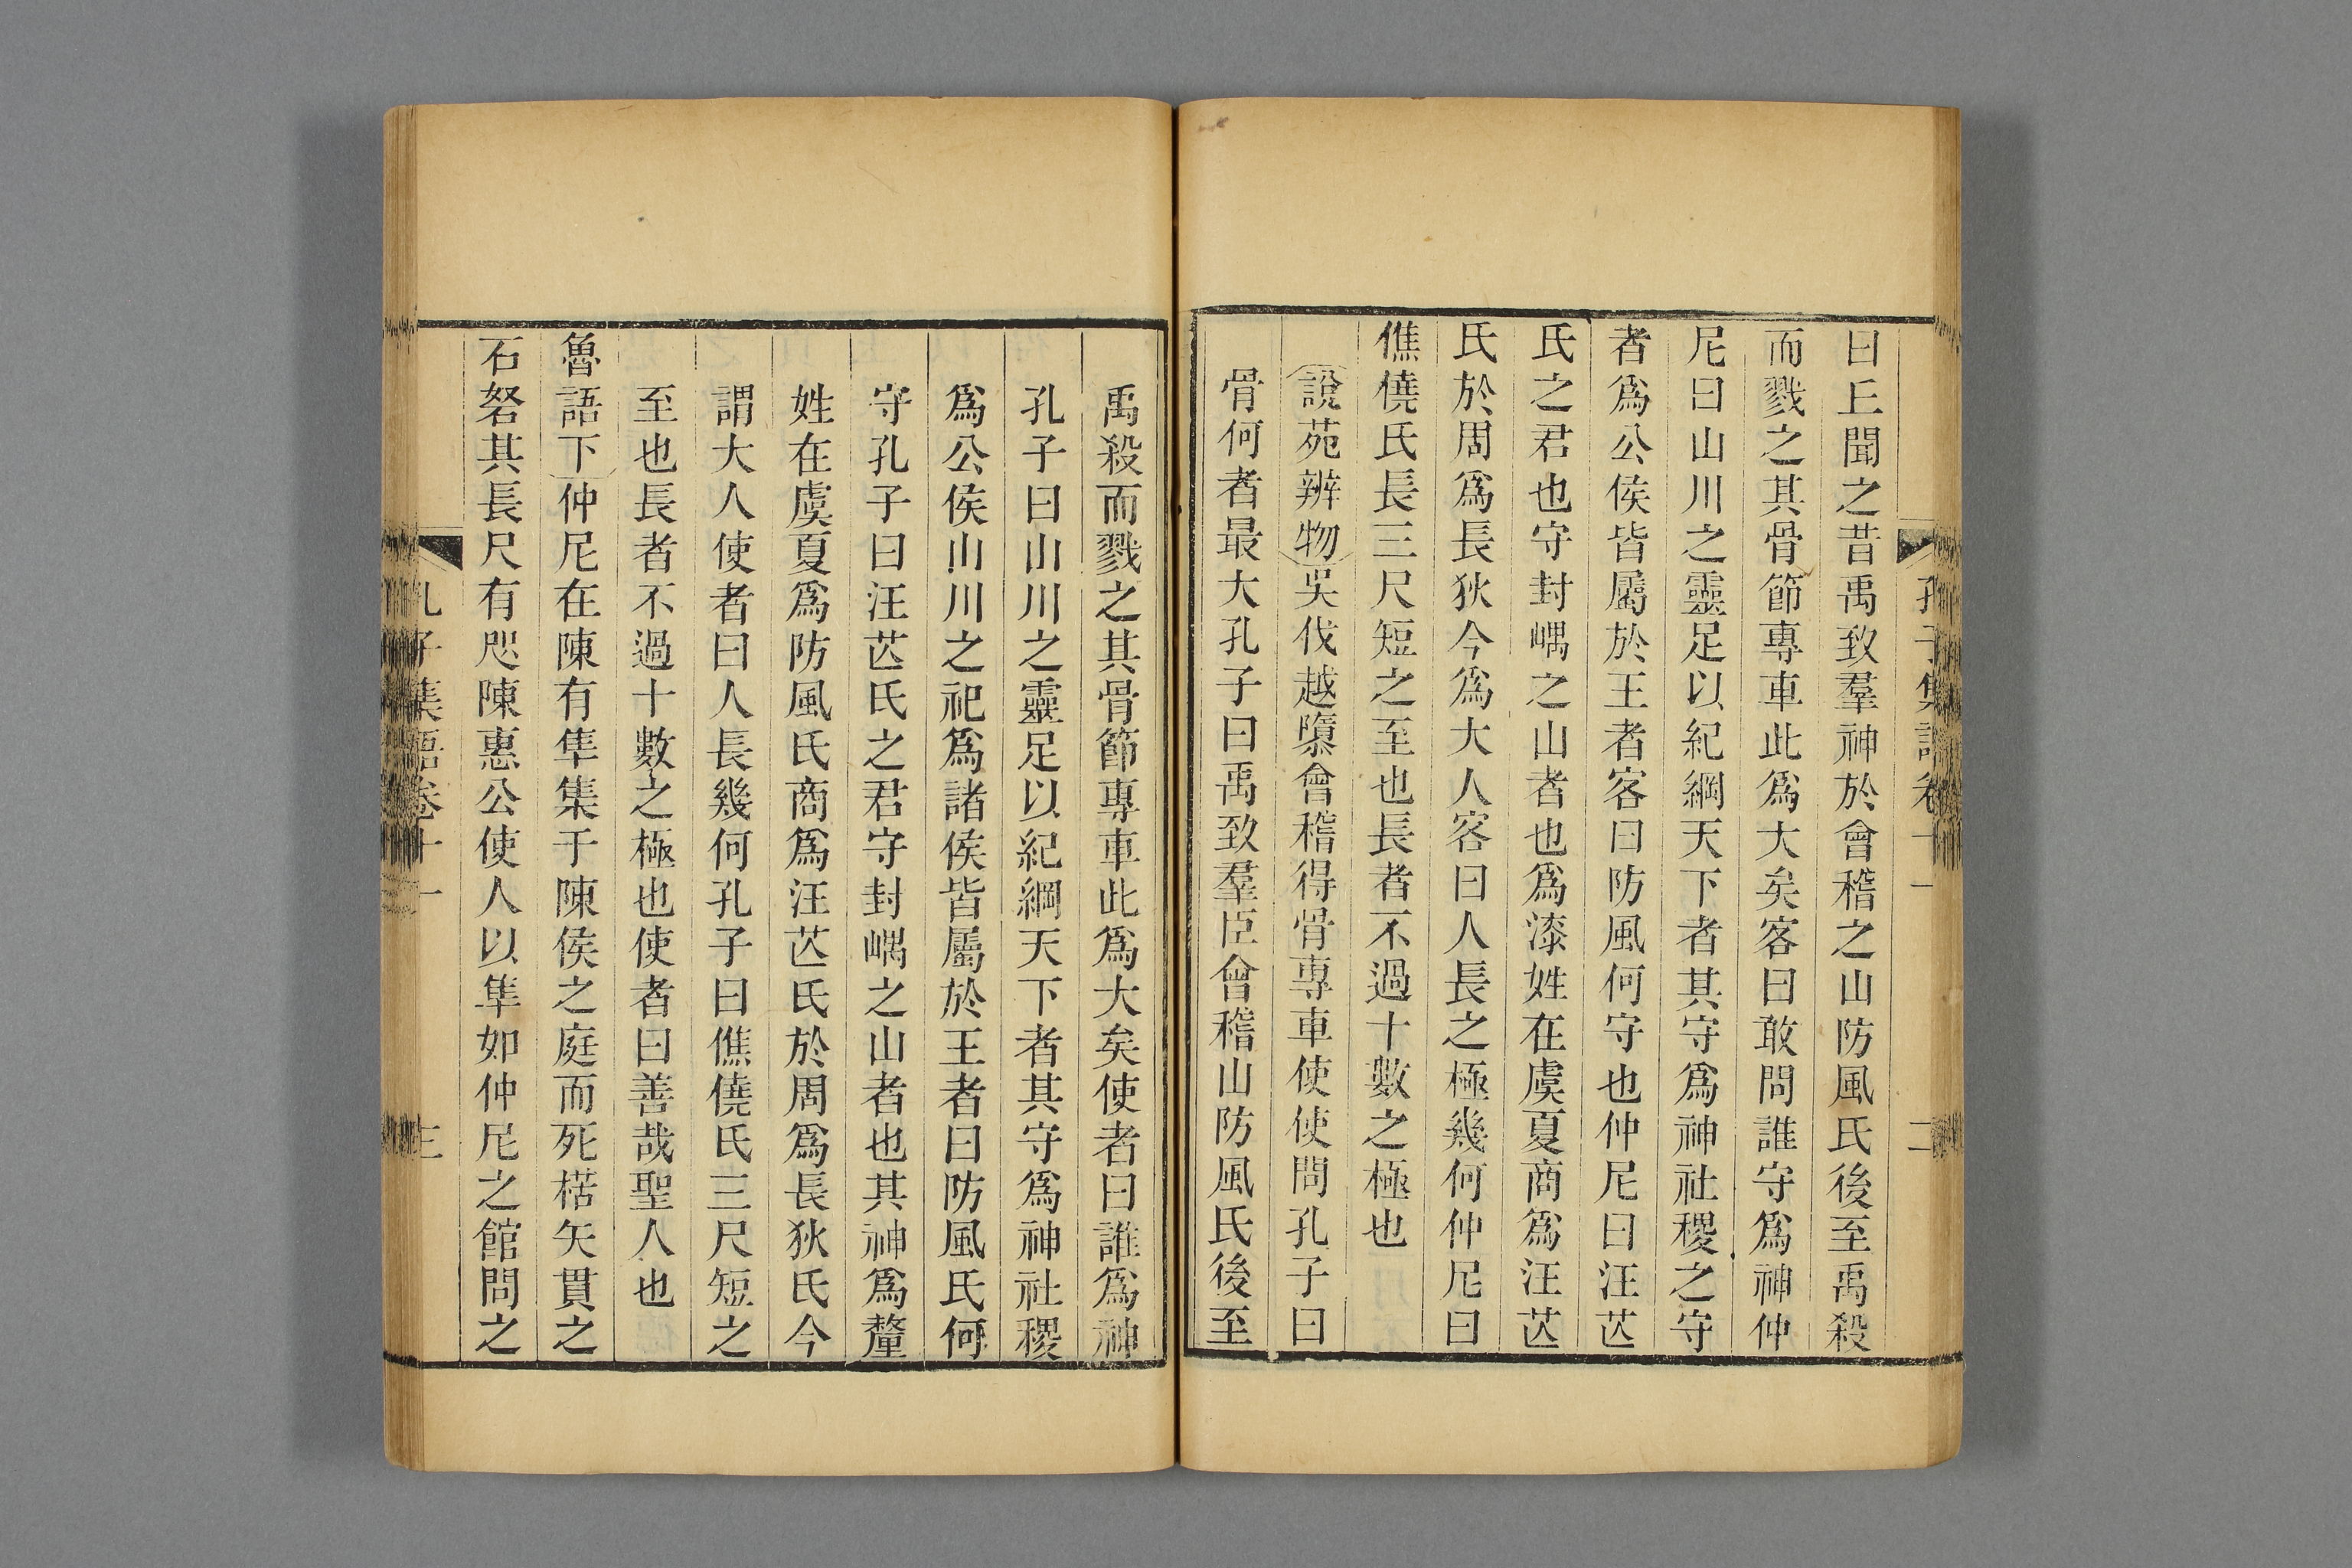 孔子集語卷十一
二
曰丘聞之昔禹致羣神於會稽之山防風氏後至禹殺
而戮之其骨節專車此爲大矣客曰敢問誰守爲神仲
尼曰山川之靈足以紀綱天下者其守爲神社稷之守
者爲公侯皆屬於王者客曰防風何守也仲尼曰汪芒
氏之君也守封嵎之山者也爲漆姓在虞夏商爲汪芒
氏於周爲長狄今爲大人客曰人長之極幾何仲尼曰
僬僥氏長三尺短之至也長者不過十數之極也
說苑辨物吳伐越隳會稽得骨專車使使問孔子曰
骨何者最大孔子曰禹致羣臣會稽山防風氏後至
禹殺而戮之其骨節專車此爲大矣使者曰誰爲神
孔子曰山川之靈足以紀綱天下者其守爲神社稷
爲公侯山川之祀爲諸侯皆屬於王者曰防風氏何
守孔子曰汪芒氏之君守封嵎之山者也其神爲釐
姓在虞夏爲防風氏商爲汪芒氏於周爲長狄氏今
謂大人使者曰人長幾何孔子曰僬僥氏三尺短之
至也長者不過十數之極也使者曰善哉聖人也
魯語下仲尼在陳有隼集于陳侯之庭而死楛矢貫之
石砮其長尺有咫陳惠公使人以隼如仲尼之館問之
孔子集語卷十一
三